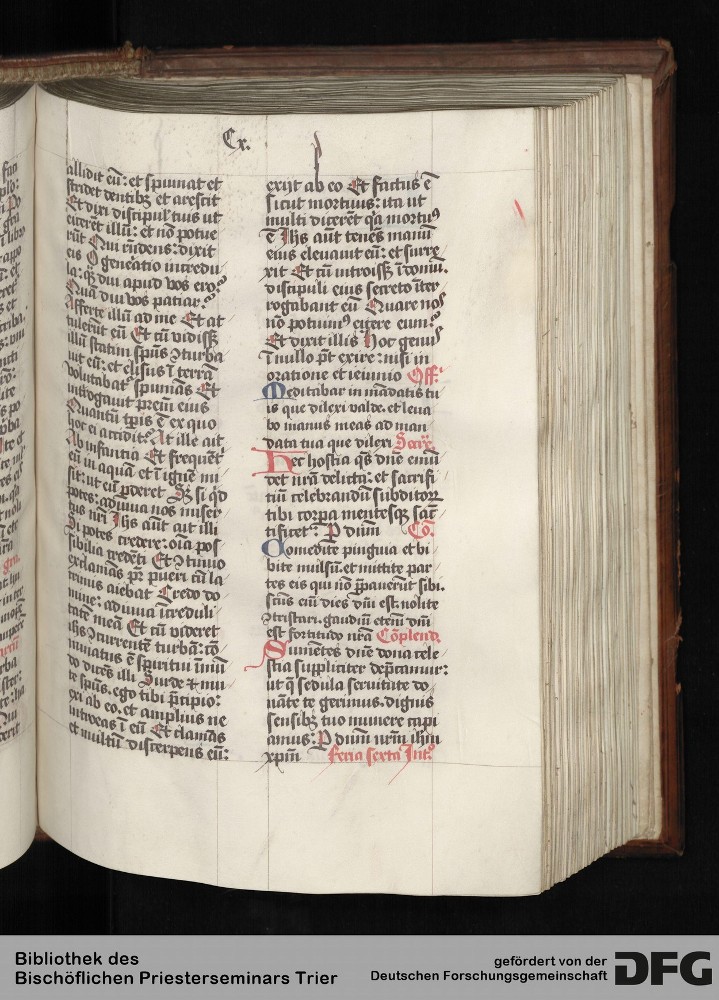 Cx.
allidit eū: et spumat et
stridet dentibꝫ et arescit
Et dixi discipul tuis ut
eicerēt illū: et nō potue
rūt Qui rn̄dens: dixit
eis O gen̄catio incredu
la: qͣ diu apud vos ero?
Quā diu vos patiar?
Afferte illū ad me Et at
tulerūt eū Et cū vidissꝫ
illū statim spūs ꝯturba
uit eū: et elisus ī terrā
volutabatʳ spumās Et
intrrogauit prēm eius
Quantū tꝑis ē ex quo
hoc ei accidit? At ille ait
Ab infantia Et frequēt
eū in aquā et ī ignē mi
sit: ut eū ꝑderet Sꝫ si qͥd
potes: adiuua nos miser
tus nr̄i Ihs aūt ait illi
Si potes credere: oīa pos
sibilia credēti Et ꝯtinuo
exclamās pr̄ pueri cū la
crimis aiebat Credo do
mine: adiuua īcreduli
tatē meā Et cū videret
ihs ꝯcurrentē turbā: cō
minatus ē spiritui īmūn
do dicēs illi Surde ⁊ mu
te spūs. ego tibi p̄cipio:
exi ab eo. et amplius ne
introeas ī eū Et clamās
et multū discerpens eū:
exijt ab eo Et factus ē
sicut mortuus: ita ut
multi dicerēt qͣ mortuꝰ
ē Ihs aūt tenēs manū
eius eleuauit eū: et surre
xit Et cū introissꝫ ī domū.
discipuli eius secreto īter
rogabant eū Quare nos
nō potuimꝰ eicere eum?
Et dixit illis Hoc genus
ī nullo pt̄ exire: nisi in
oratione et ieiunio Off.
Meditabar in mādatis tu
is que dilexi valde. et leua
bo manus meas ad man
data tua que dilexi Secr̄.
Hec hostia qs̄ dn̄e emū
det nr̄a delicta: et sacrifi
tiū celebrandū subditoꝝ
tibi corꝑa mentesqꝫ sāc
tificet: P dnm̄ Cō.
Comedite pinguia et bi
bite mulsū. et mittite par
tes eis qui nō p̄pauerūt sibi.
scūs eīm dies dnī est. nolite
ꝯtristari. gaudiū etenī dnī
est fortitudo nr̄a Cōplend.
Sumētes dn̄e dona cele
stia suppliciter dep̄camur:
ut q̄ sedula seruitute do
nāte te gerimus. dignis
sensibꝫ tuo munere capi
amus: P dnm̄ nrm̄ ihm
xpm̄ feria sexta Int.
Bibliothek des
Bischöflichen Priesterseminars Trier
gefördert von der
Deutschen Forschungsgemeinschaft DFG